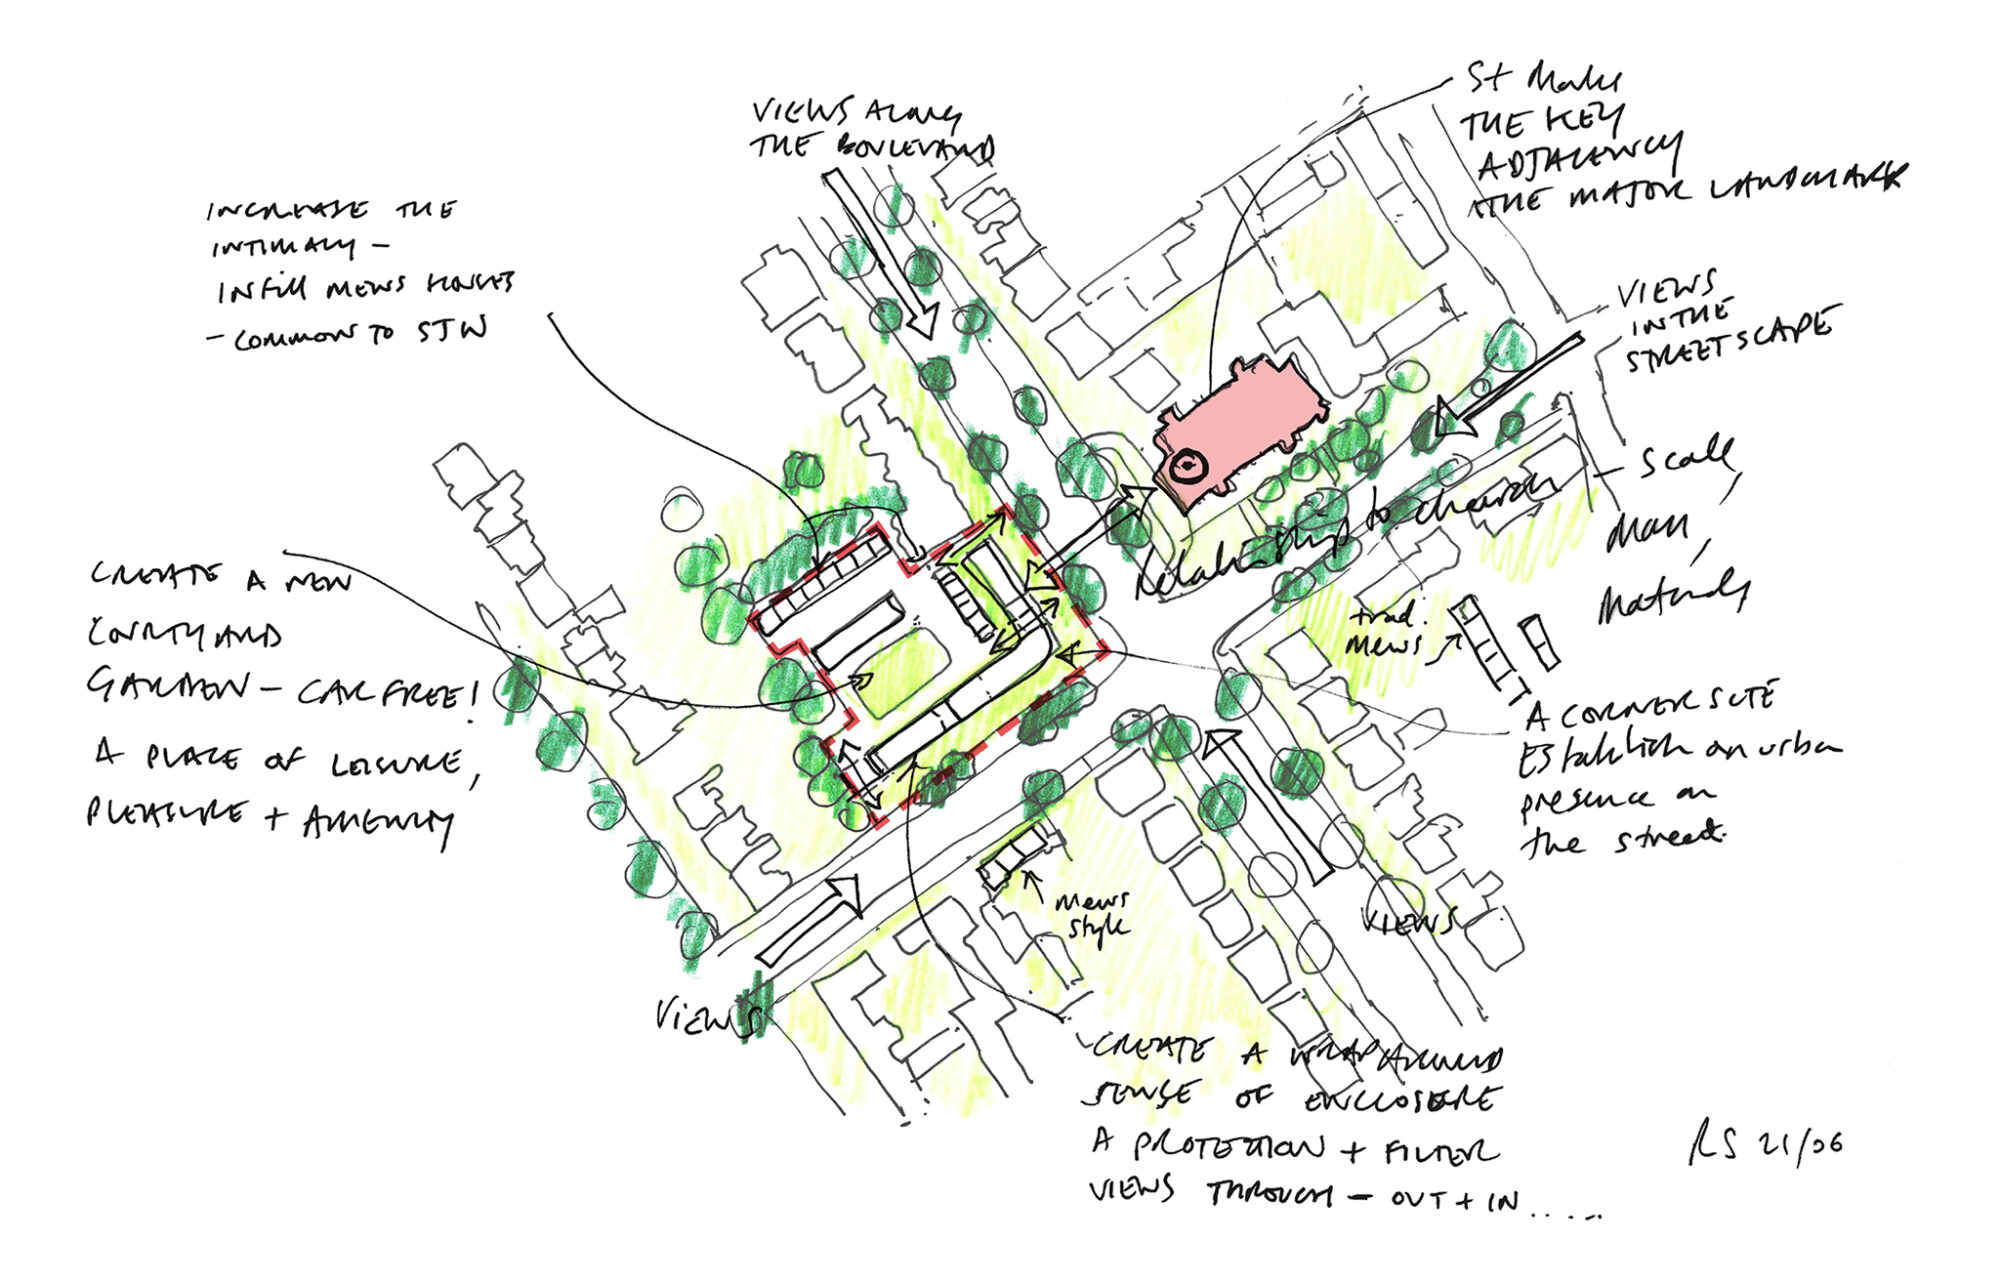 VIEWS ALONG
THE BOULEVARD
St Marks
THE KEY
ADJACENCY
THE MAJOR LANDMARK
INCREASE THE
INTIMACY -
INFILL MEWS HOUSES
- COMMON TO SJW
VIEWS
IN THE
STREETSCAPE
Relationship to church - Scale,
Mass,
Materials
CREATE A NEW
COURTYARD
GARDEN - CAR FREE!
A PLACE OF LEISURE,
PLEASURE + AMENITY
trad.
mews
A CORNER SITE
Establish an urban
presence on
the street.
mews
style
VIEWS
VIEWS
CREATE A WRAPAROUND
SENSE OF ENCLOSURE
A PROTECTION + FILTER
VIEWS THROUGH - OUT + IN.....
RS 21/06